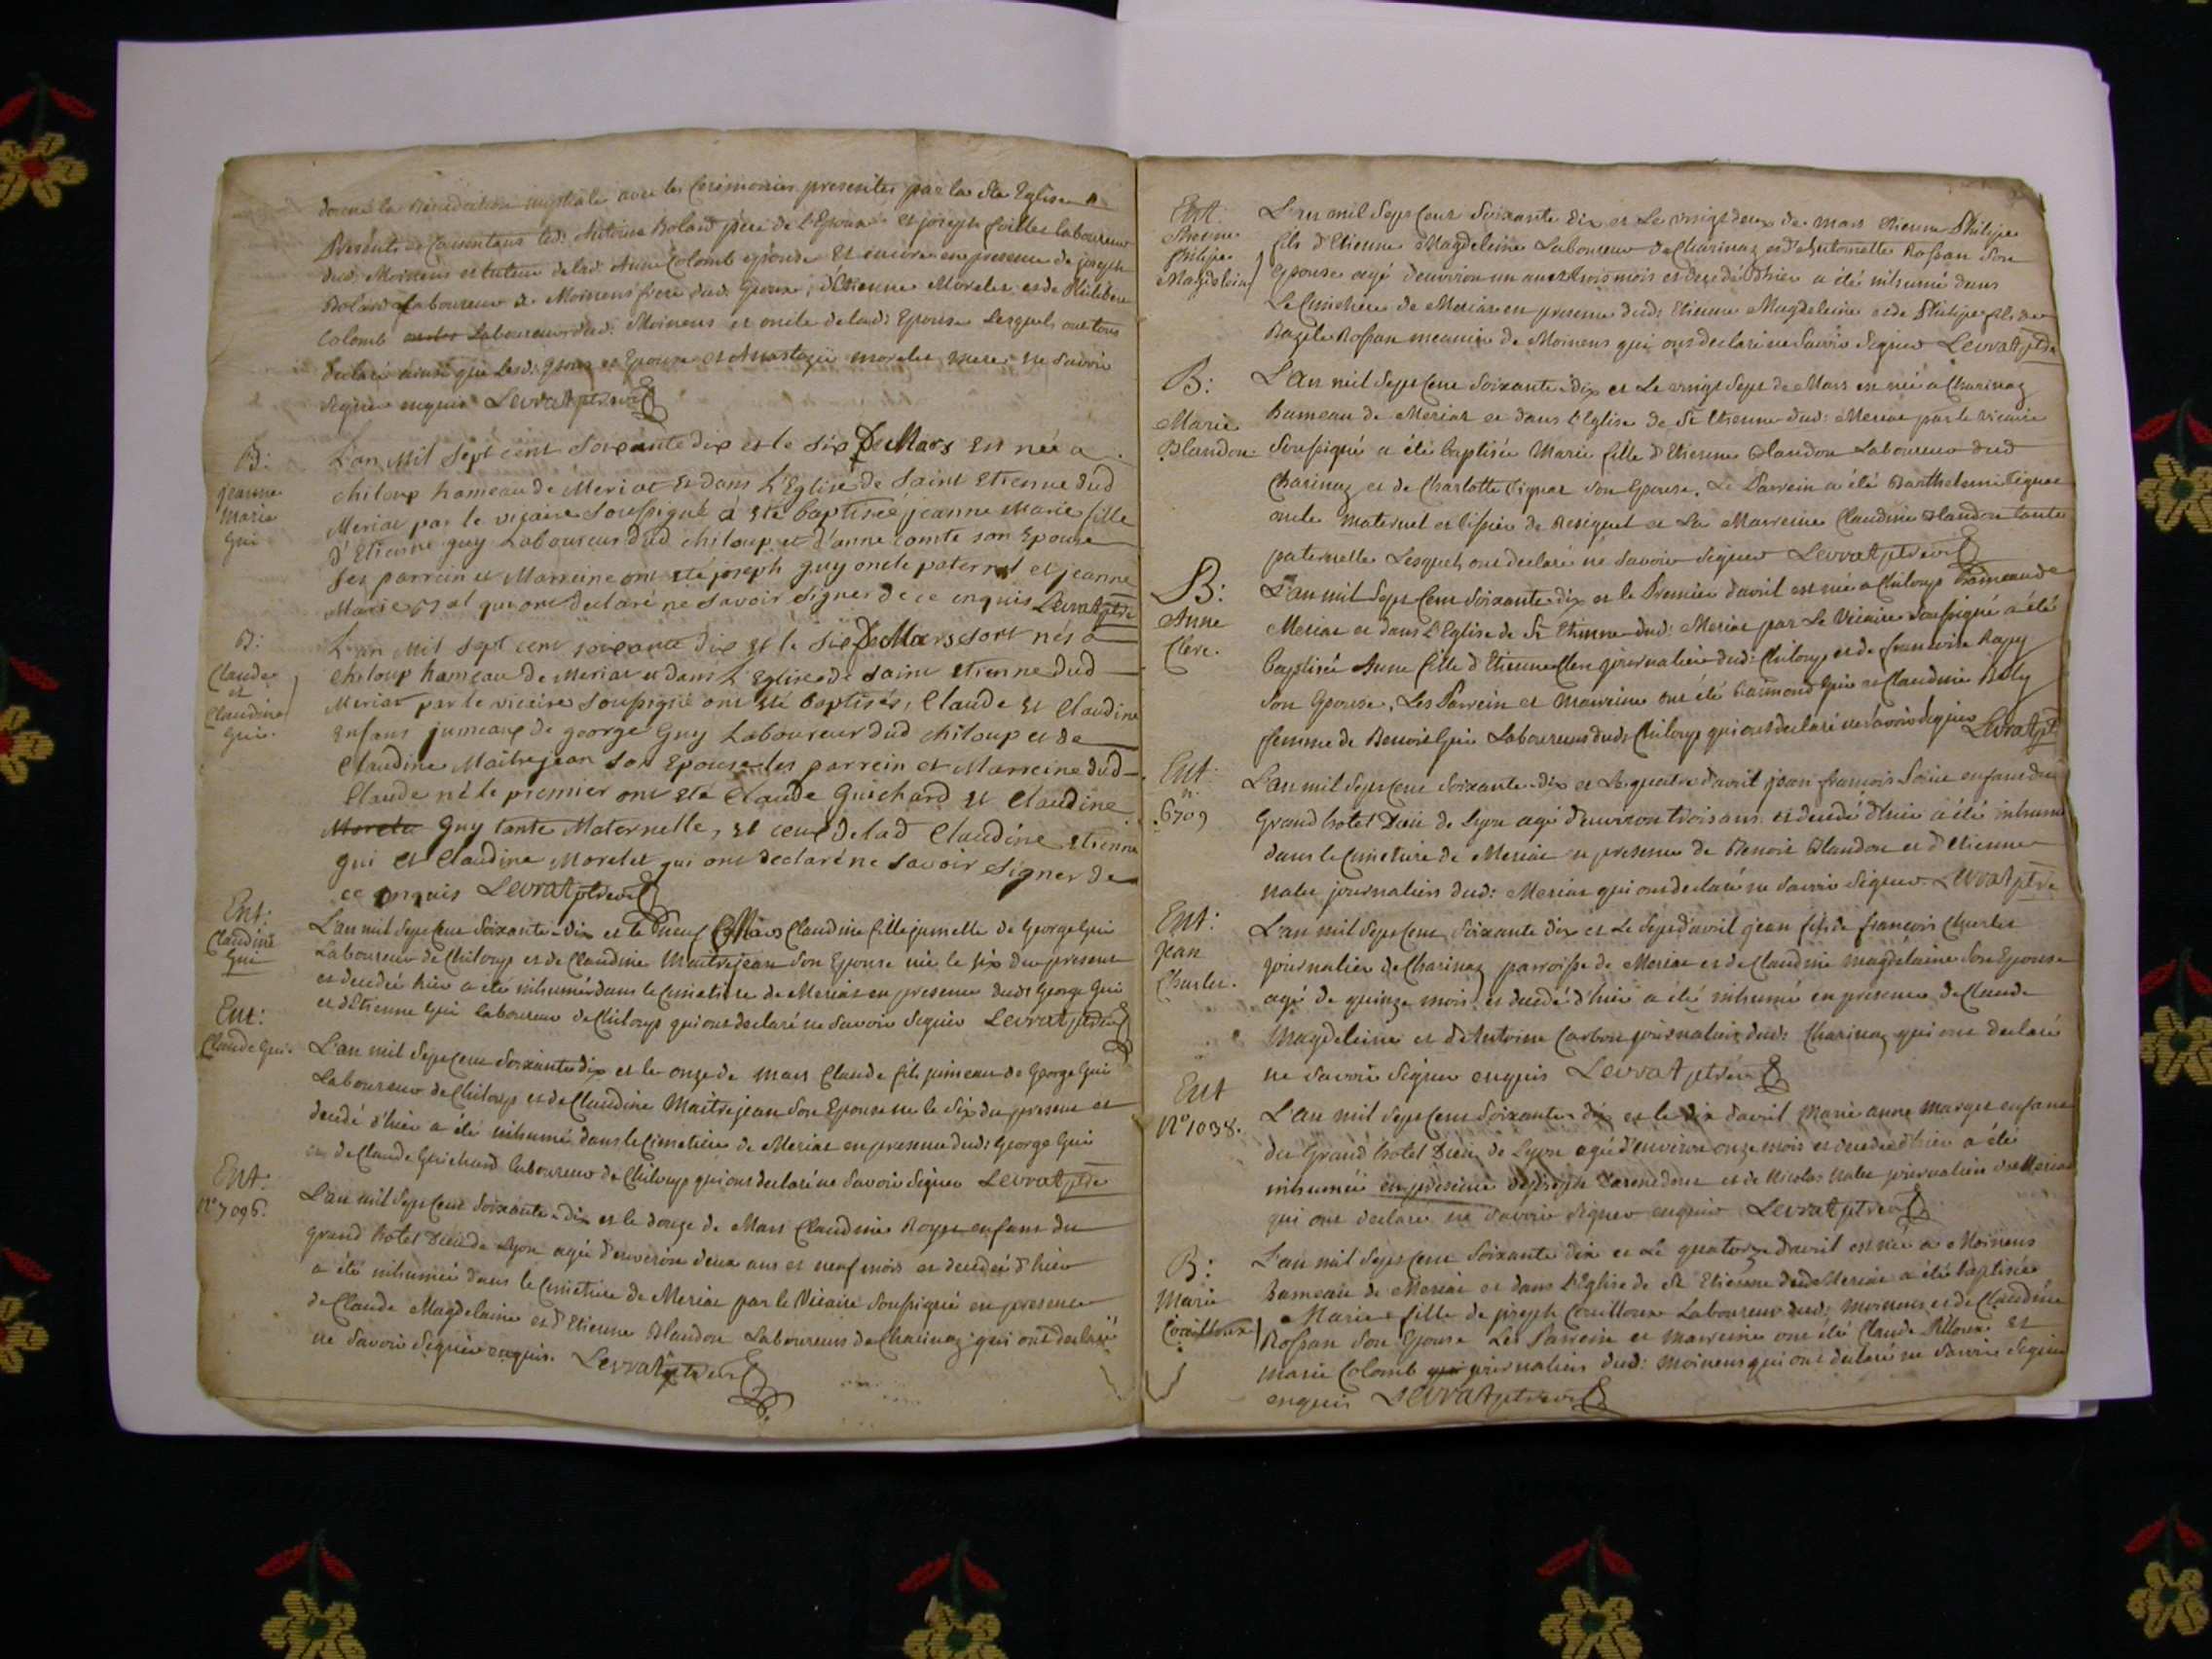 donné la Bénédiction nuptiale avec les Ceremonies prescrites par la Ste Eglise
Presents et Consentans led: Antoine Boland père de L'Epoux et joseph laboureur
dud: Moinens et tuteur de lad: Anne Colomb epouse Et encore en presence de joseph
Boland Laboureur de Moinens frere dud: Epoux, d'Etienne Morelet et de Philibert
Colomb Laboureur dud: Moinens et oncle de lad: Epouse Lesquels ont tous
declaré ainsi que Lesd: Epoux et Epouse et Anastazie morelet mere ne savoir
signer enquis Levrat ptre vic
B:
jeanne
marie
gui
L'an Mil Sept cent soixante dix et le six De Mars Est née a
chiloup hameau de Meriat Et dans L'Eglise de Saint Etienne dud
Meriat par le vicaire soussigné à Eté baptisée jeanne Marie fille
d'Etienne guy Laboureur dud chiloup et d'anne comte son Epouse
Ses parrein et Marreine ont eté joseph guy oncle paternel et jeanne
Marie qui ont declaré ne savoir signer de ce enquis Levrat ptre
B:
Claude
et
Claudine
gui.
L'an Mil Sept cent soixante dix et le six De Mars sont nés a
chiloup hameau de Meriat et dans L'Eglise de saint Etienne dud
Meriat par le vicaire soussigné ont eté baptisés, Claude Et Claudine
Enfans jumeaux de george Guy Laboureur dud chiloup et de
Claudine Maitrejean son Epouse les parrein et Marreine dud
Claude né le premier ont eté Claude Guichard Et Claudine
Morelet Guy tante Maternelle, Et ceux de lad Claudine Etienne
gui et Claudine Morelet qui ont declaré ne savoir signer de
ce enquis Levrat ptre vic
Ent:
Claudine
Gui
L'an mil Sept Cent Soixante-Dix et le neuf Mars Claudine fille jumelle de George Gui
Laboureur de Chiloup et de Claudine Maitrejean Son Epouse née le six du present
et decedée hier a été inhumée dans le Cimetiere de Meriat en presence dud: George Gui
et d'Etienne Gui laboureur de Chiloup qui ont declaré ne Savoir Signer Levrat ptre vic
Ent:
Claude Gui.
L'an mil Sept Cent Soixante dix et le onze de Mars Claude fils jumeau de George Gui
Laboureur de Chiloup et de Claudine Maitrejean Son Epouse né le Six du present et
decedé d'hier a été inhumé dans le Cimetiere de Meriat en presence dud: George Gui
et de Claude Guichard laboureur de Chiloup qui ont declaré ne Savoir Signer Levrat ptre
Ent:
N° 7096.
L'an mil Sept Cent Soixante-Dix et le douze de Mars Claudine Royer enfant du
grand hotel Dieu de Lyon agée d'environ deux ans et neuf mois et decedée d'hier
a été inhumée dans le Cimetiere de Meriat par le Vicaire Soussigné en presence
de Claude Magdelaine et d'Etienne Blandon Laboureurs de Charinaz qui ont declaré
ne Savoir Signer enquis. Levrat ptre vic
Ent:
Etienne
Philipe
Magdelein
L'an mil Sept Cent Soixante dix et Le vingt deux de mars Etienne Philipe
fils d'Etienne Magdeleine Laboureur de Charinaz et d'Antoinette Rossan Son
Epouse agé d'environ un an et trois mois et decedé d'hier a été inhumé dans
Le Cimetiere de Meriat en presence dud: Etienne Magdeleine et de Philipe fils de
Bazile Rossan meunier de Moinens qui ont declaré ne Savoir Signer Levrat ptre
B:
Marie
Blandon
L'An mil Sept Cent Soixante-Dix et Le vingt Sept de Mars est née a Charinaz
hameau de Meriat et dans l'Eglise de St Etienne dud: Meriat par le vicaire
Soussigné a été baptisée Marie fille d'Etienne Blandon Laboureur dud
Charinaz et de Charlotte Tignat Son Epouse. Le Parrein a été Barthelemi Tignat
oncle maternel et Tissier de Resignel et La Marreine Claudine Blandon tante
paternelle Lesquels ont declaré ne Savoir Signer Levrat ptre vic
B:
Anne
Clerc.
L'an mil Sept Cent Soixante-Dix et le Premier d'avril est née a Chiloup hameau de
Meriat et dans L'Eglise de St Etienne dud: Meriat par Le Vicaire Soussigné a été
baptisée Anne fille d'Etienne Clerc journalier dud: Chiloup et de francoise Rapy
Son Epouse. Les Parrein et Marreine ont été Raimond Gui et Claudine Bely
femme de Benoit Gui Laboureurs dud: Chiloup qui ont declaré ne Savoir Signer Levrat pt
Ent:
n.
6709
L'an mil Sept Cent Soixante-Dix et Le quatre d'avril jean francois enfant du
Grand hotel Dieu de Lyon agé d'environ trois ans et decedé d'hier a été inhumé
dans le Cimetiere de Meriat en presence de Benoit Blandon et d'Etienne
Nalet journaliers dud: Meriat qui ont declaré ne Savoir Signer Levrat ptre
Ent:
Jean
Charlet.
L'an mil Sept Cent Soixante dix et Le Sept d'avril jean fils de francois Charlet
journalier de Charinaz parroisse de Meriat et de Claudine magdelaine Son Epouse
agé de quinze mois et decedé d'hier a été inhumé en presence de Claude
Magdeleine et d'Antoine Carbon journaliers dud: Charinaz qui ont declaré
ne Savoir Signer enquis Levrat ptre vic
Ent
N° 1038.
L'an mil Sept Cent Soixante dix et le dix d'avril Marie anne Marget enfant
du Grand hotel Dieu de Lyon agé d'environ onze mois et decedée d'hier a été
inhumée en presence de joseph et de Nicolas Nalet journalier de Meriat
qui ont declaré ne Savoir Signer enquis Levrat ptre vic
B:
Marie
Coutilloux
L'an mil Sept Cent Soixante dix et Le quatorze d'avril est née a Moinens
hameau de Meriat et dans L'Eglise de St Etienne dud Meriat a été baptisée
Marie fille de joseph Coutilloux Laboureur dud: moinens et de Claudine
Rossan Son Epouse Les Parrein et Marreine ont été Claude et
Marie Colomb journaliers dud: moinens qui ont declaré ne Savoir Signer
enquis Levrat ptre vic